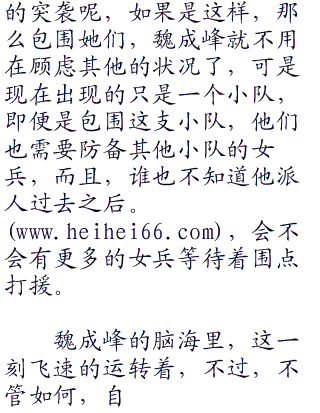 的突袭呢，如果是这样，那
么包围她们，魏成峰就不用
在顾虑其他的状况了，可是
现在出现的只是一个小队，
即便是包围这支小队，他们
也需要防备其他小队的女
兵，而且，谁也不知道他派
人过去之后。
(www.heihei66.com)，会不
会有更多的女兵等待着围点
打援。
魏成峰的脑海里，这一
刻飞速的运转着，不过，不
管如何，自